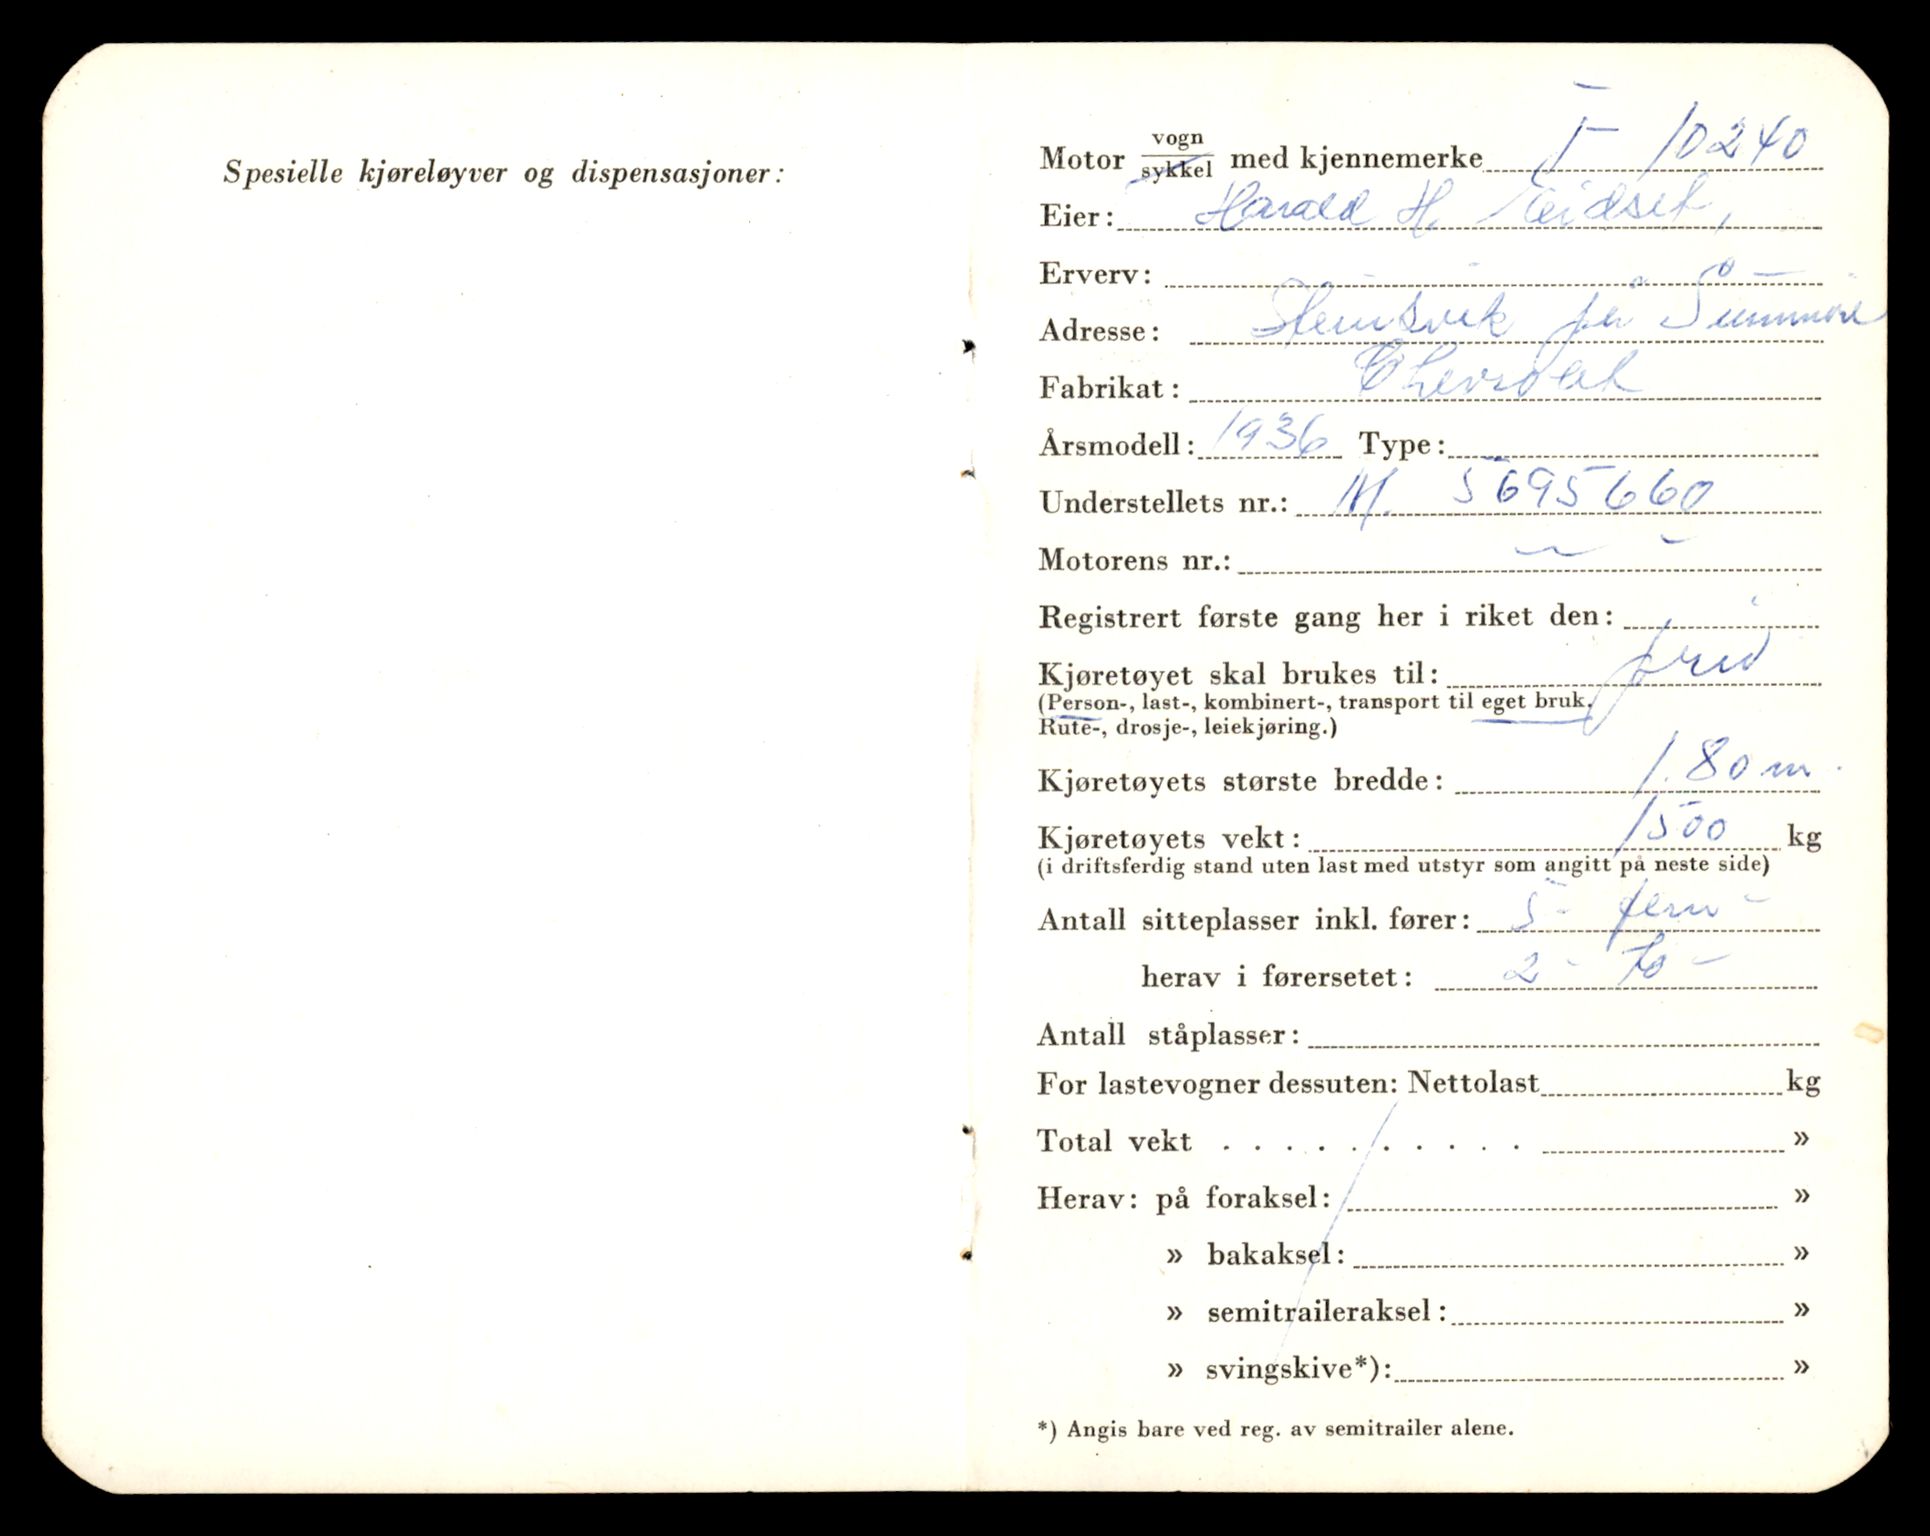 Spesielle kjøreløyver og dispensasjoner:
Motor vogn/sykkel med kjennemerke T 10240
Eier: Harald H. Eidset,
Erverv:
Adresse: på Sunnmøre
Fabrikat: Chevrolet
Årsmodell: 1936 Type:
Understellets nr.: M. 5695660
Motorens nr.: — " —
Registrert første gang her i riket den:
Kjøretøyet skal brukes til:
(Person-, last-, kombinert-, transport til eget bruk.
Rute-, drosje-, leiekjøring.)
Kjøretøyets største bredde: 1.80 m.
Kjøretøyets vekt: 1500 kg
(i driftsferdig stand uten last med utstyr som angitt på neste side)
Antall sitteplasser inkl. fører: 5 - fem -
herav i førersetet: 2 - to -
Antall ståplasser:
For lastevogner dessuten: Nettolast kg
Total vekt . . . . . . . . . . »
Herav: på foraksel: »
» bakaksel: »
» semitraileraksel: »
» svingskive*): »
*) Angis bare ved reg. av semitrailer alene.